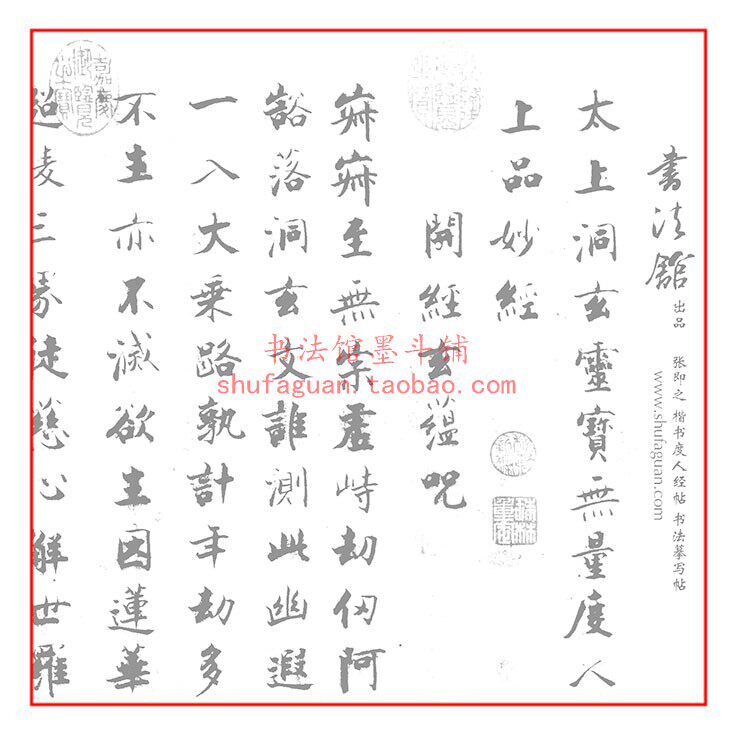 書法館 出品 张即之 楷书度人经帖 书法摹写帖
www.shufaguan.com
太上洞玄靈寶無量度人
上品妙經
開經玄蘊呪
寂寂至無宗虛峙劫仞阿
豁落洞玄文誰測此幽遐
一入大乘路孰計年劫多
不生亦不滅欲生因蓮華
超凌三界徒慈心解世羅
嘉慶御覽之寶
书法馆墨斗铺
shufaguan.taobao.com